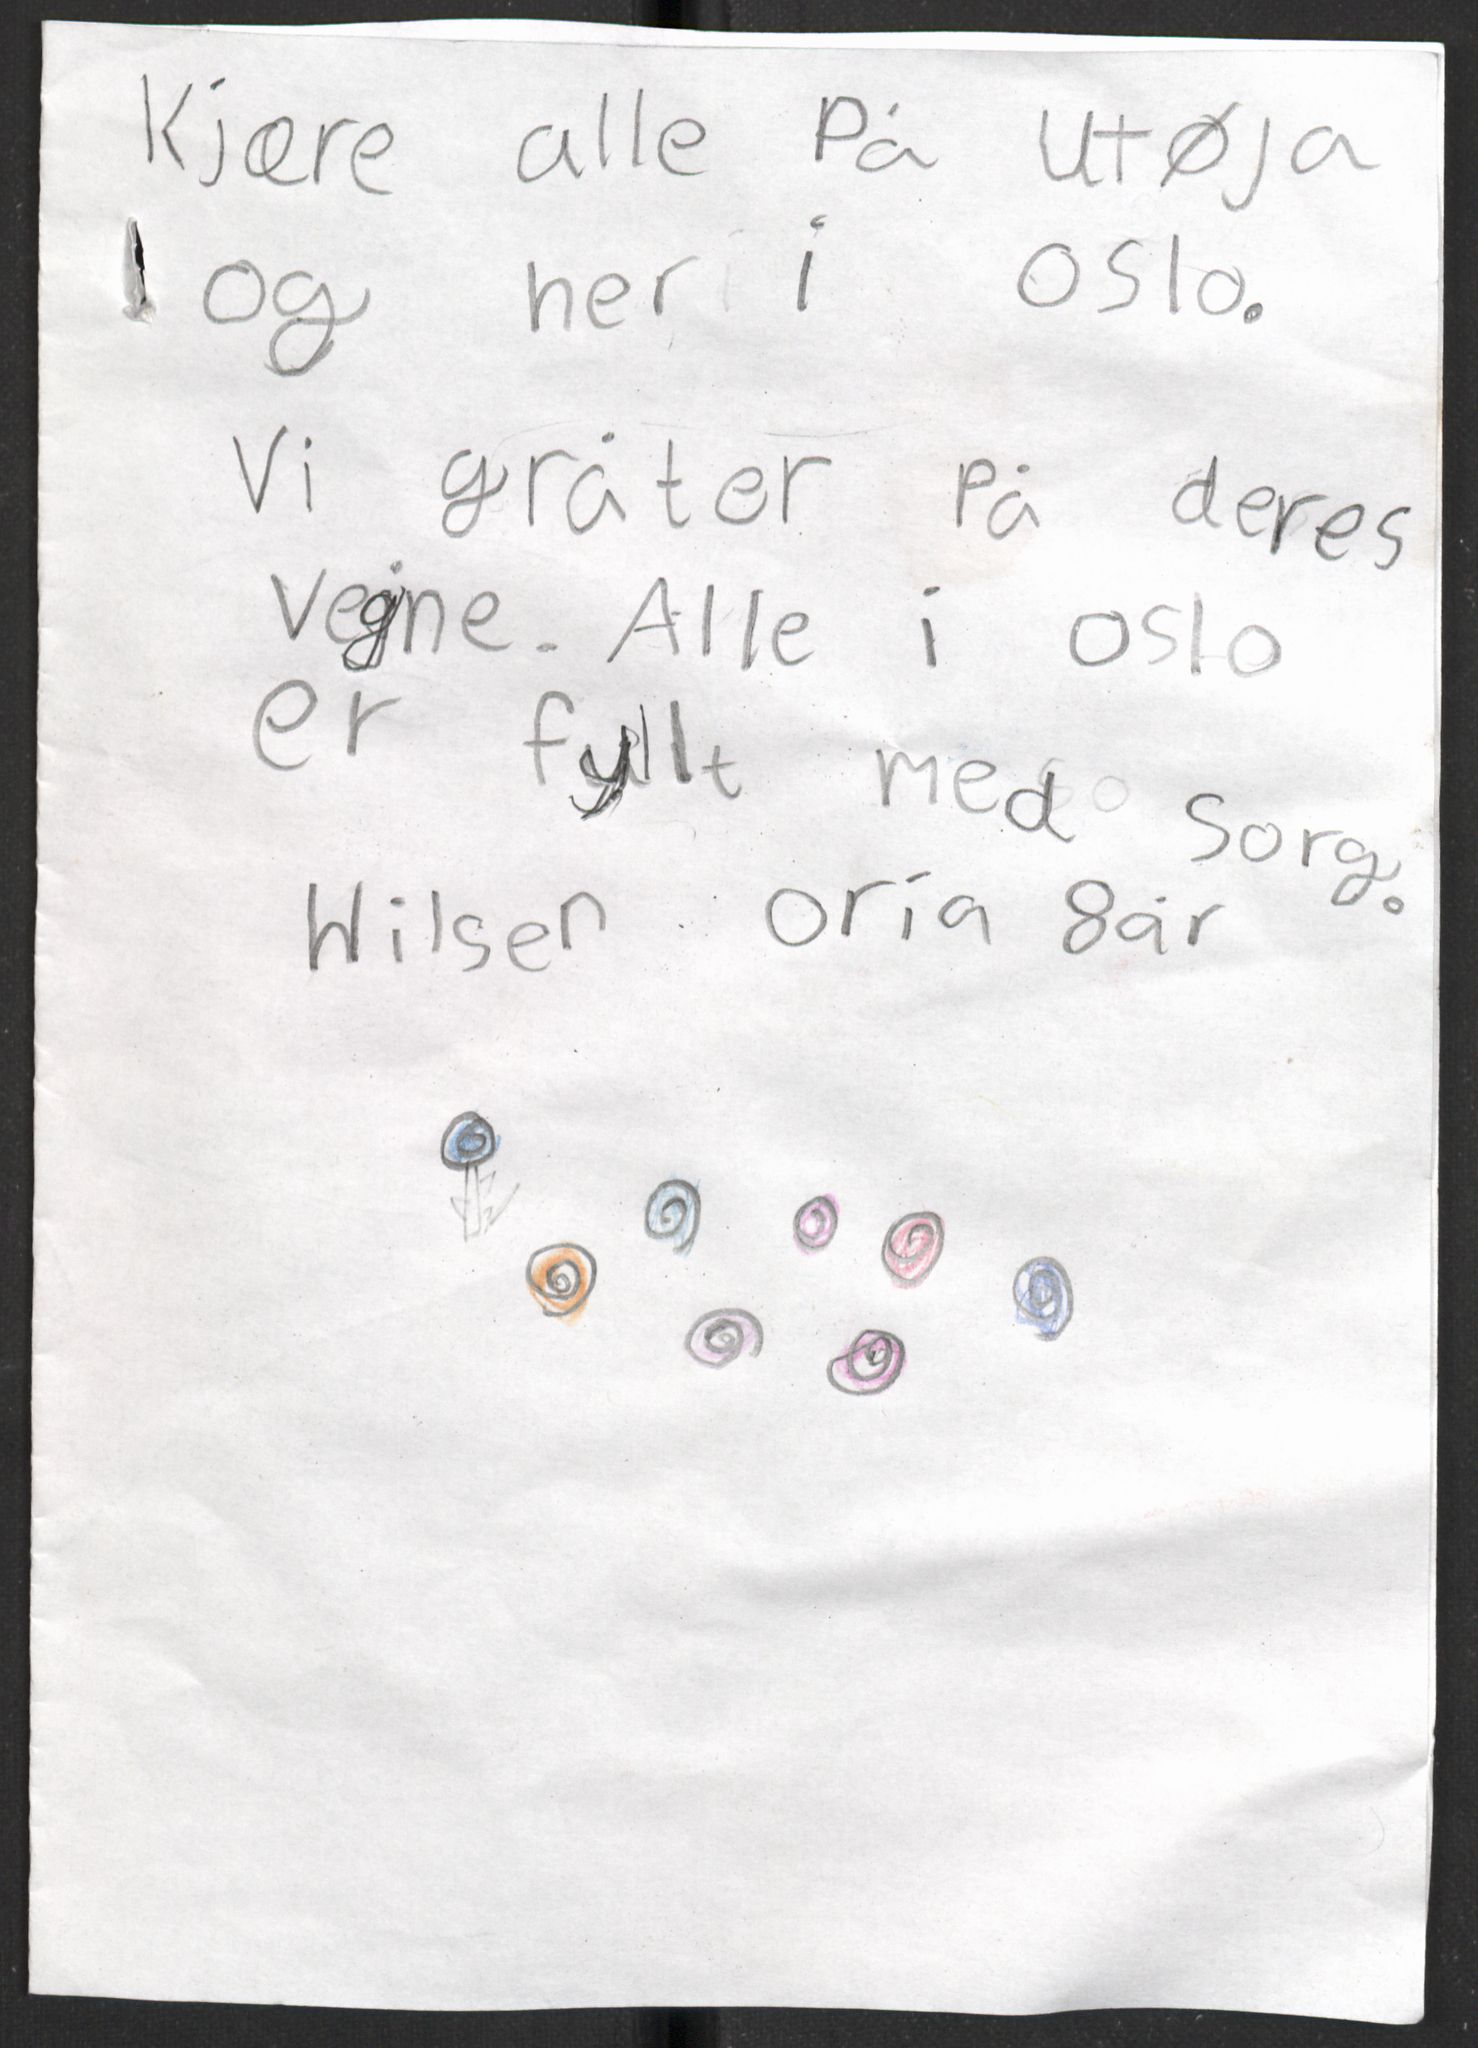 Kjære alle På Utøja
og her i oslo.
Vi gråter På deres
vegne. Alle i oslo
er fyllt med sorg.
Hilsen oria 8år